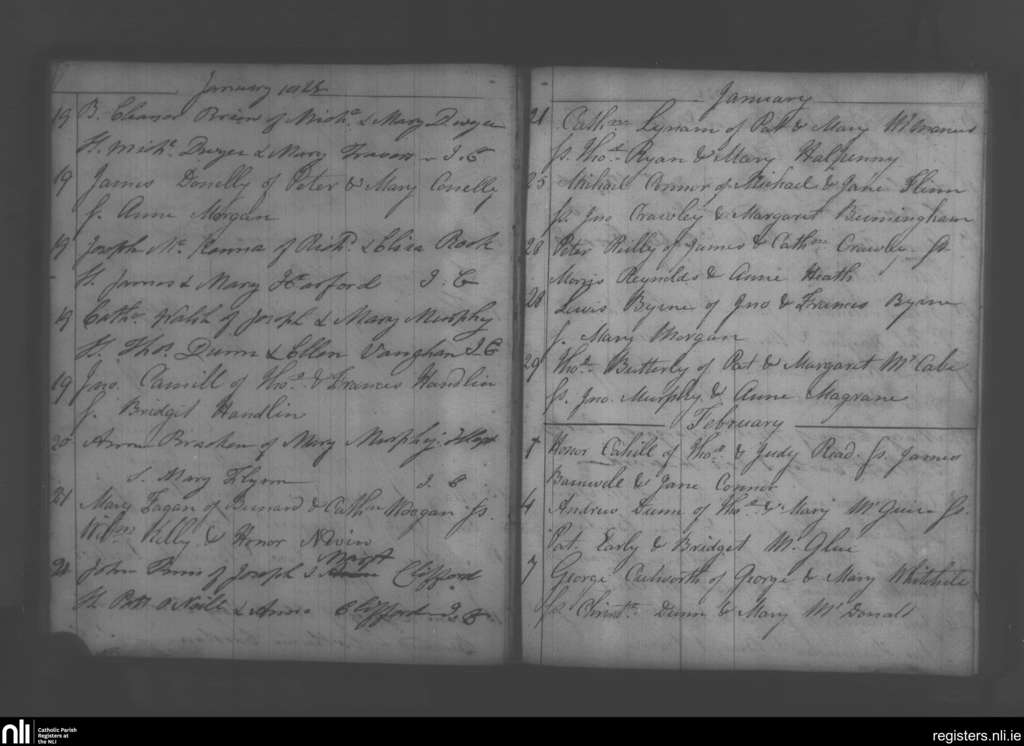 January 1828
19 B. Eleanor Brien of Michl. & Mary Dwyer
Ss. Michl. Dwyer & Mary J. C
19 James Donelly of Peter & Mary Conelly
S. Anne Morgan
19 Joseph Mc. Kenna of Richd. & Eliza Rook
Ss. James & Mary Harford J. C
19 Cathn. Walsh of Joseph & Mary Murphy
Ss. Thos. Dunn & Ellen Vaughan J. C
19 Jno. Carroll of Thos. & Frances Handlin
S. Bridgit Handlin
20 Anne Bracken of Mary Murphy
S. Mary Flynn J. C.
21 Mary Fagan of Bernard & Cathn Ss.
Wilm Rielly & Honor Nevin
21 John of Joseph & Margt Clifford
Ss. Patt O'Neill & Anne Clifford J. C.
January
21 Cathne Lynam of Patt & Mary McManus
Ss. Thos. Ryan & Mary Halpenny
25 Michael Connor of Michael & Jane Flinn
Ss. Jno Crawley & Margaret Bermingham
28 Peter Reilly of James & Cathne Crawley Ss.
Morris Reynolds & Anne Heath
28 Lewis Byrne of Jno & Frances Byrne
S. Mary Morgan
29 Thos. Butterly of Pat & Margaret McCabe
Ss. Jno. Murphy & Anne Magrane
February
Honor Cahill of Thos. & Judy Read. Ss. James
Barnwell & Jane Connor
4 Andrew Dunn of Thos. & Mary McGuire Ss.
Pat. Early & Bridget Mc. Glue
7 George of George & Mary Whitesite
Ss. Christr. Dunn & Mary McDonald
nli Catholic Parish
Registers at
the NLI
registers.nli.ie